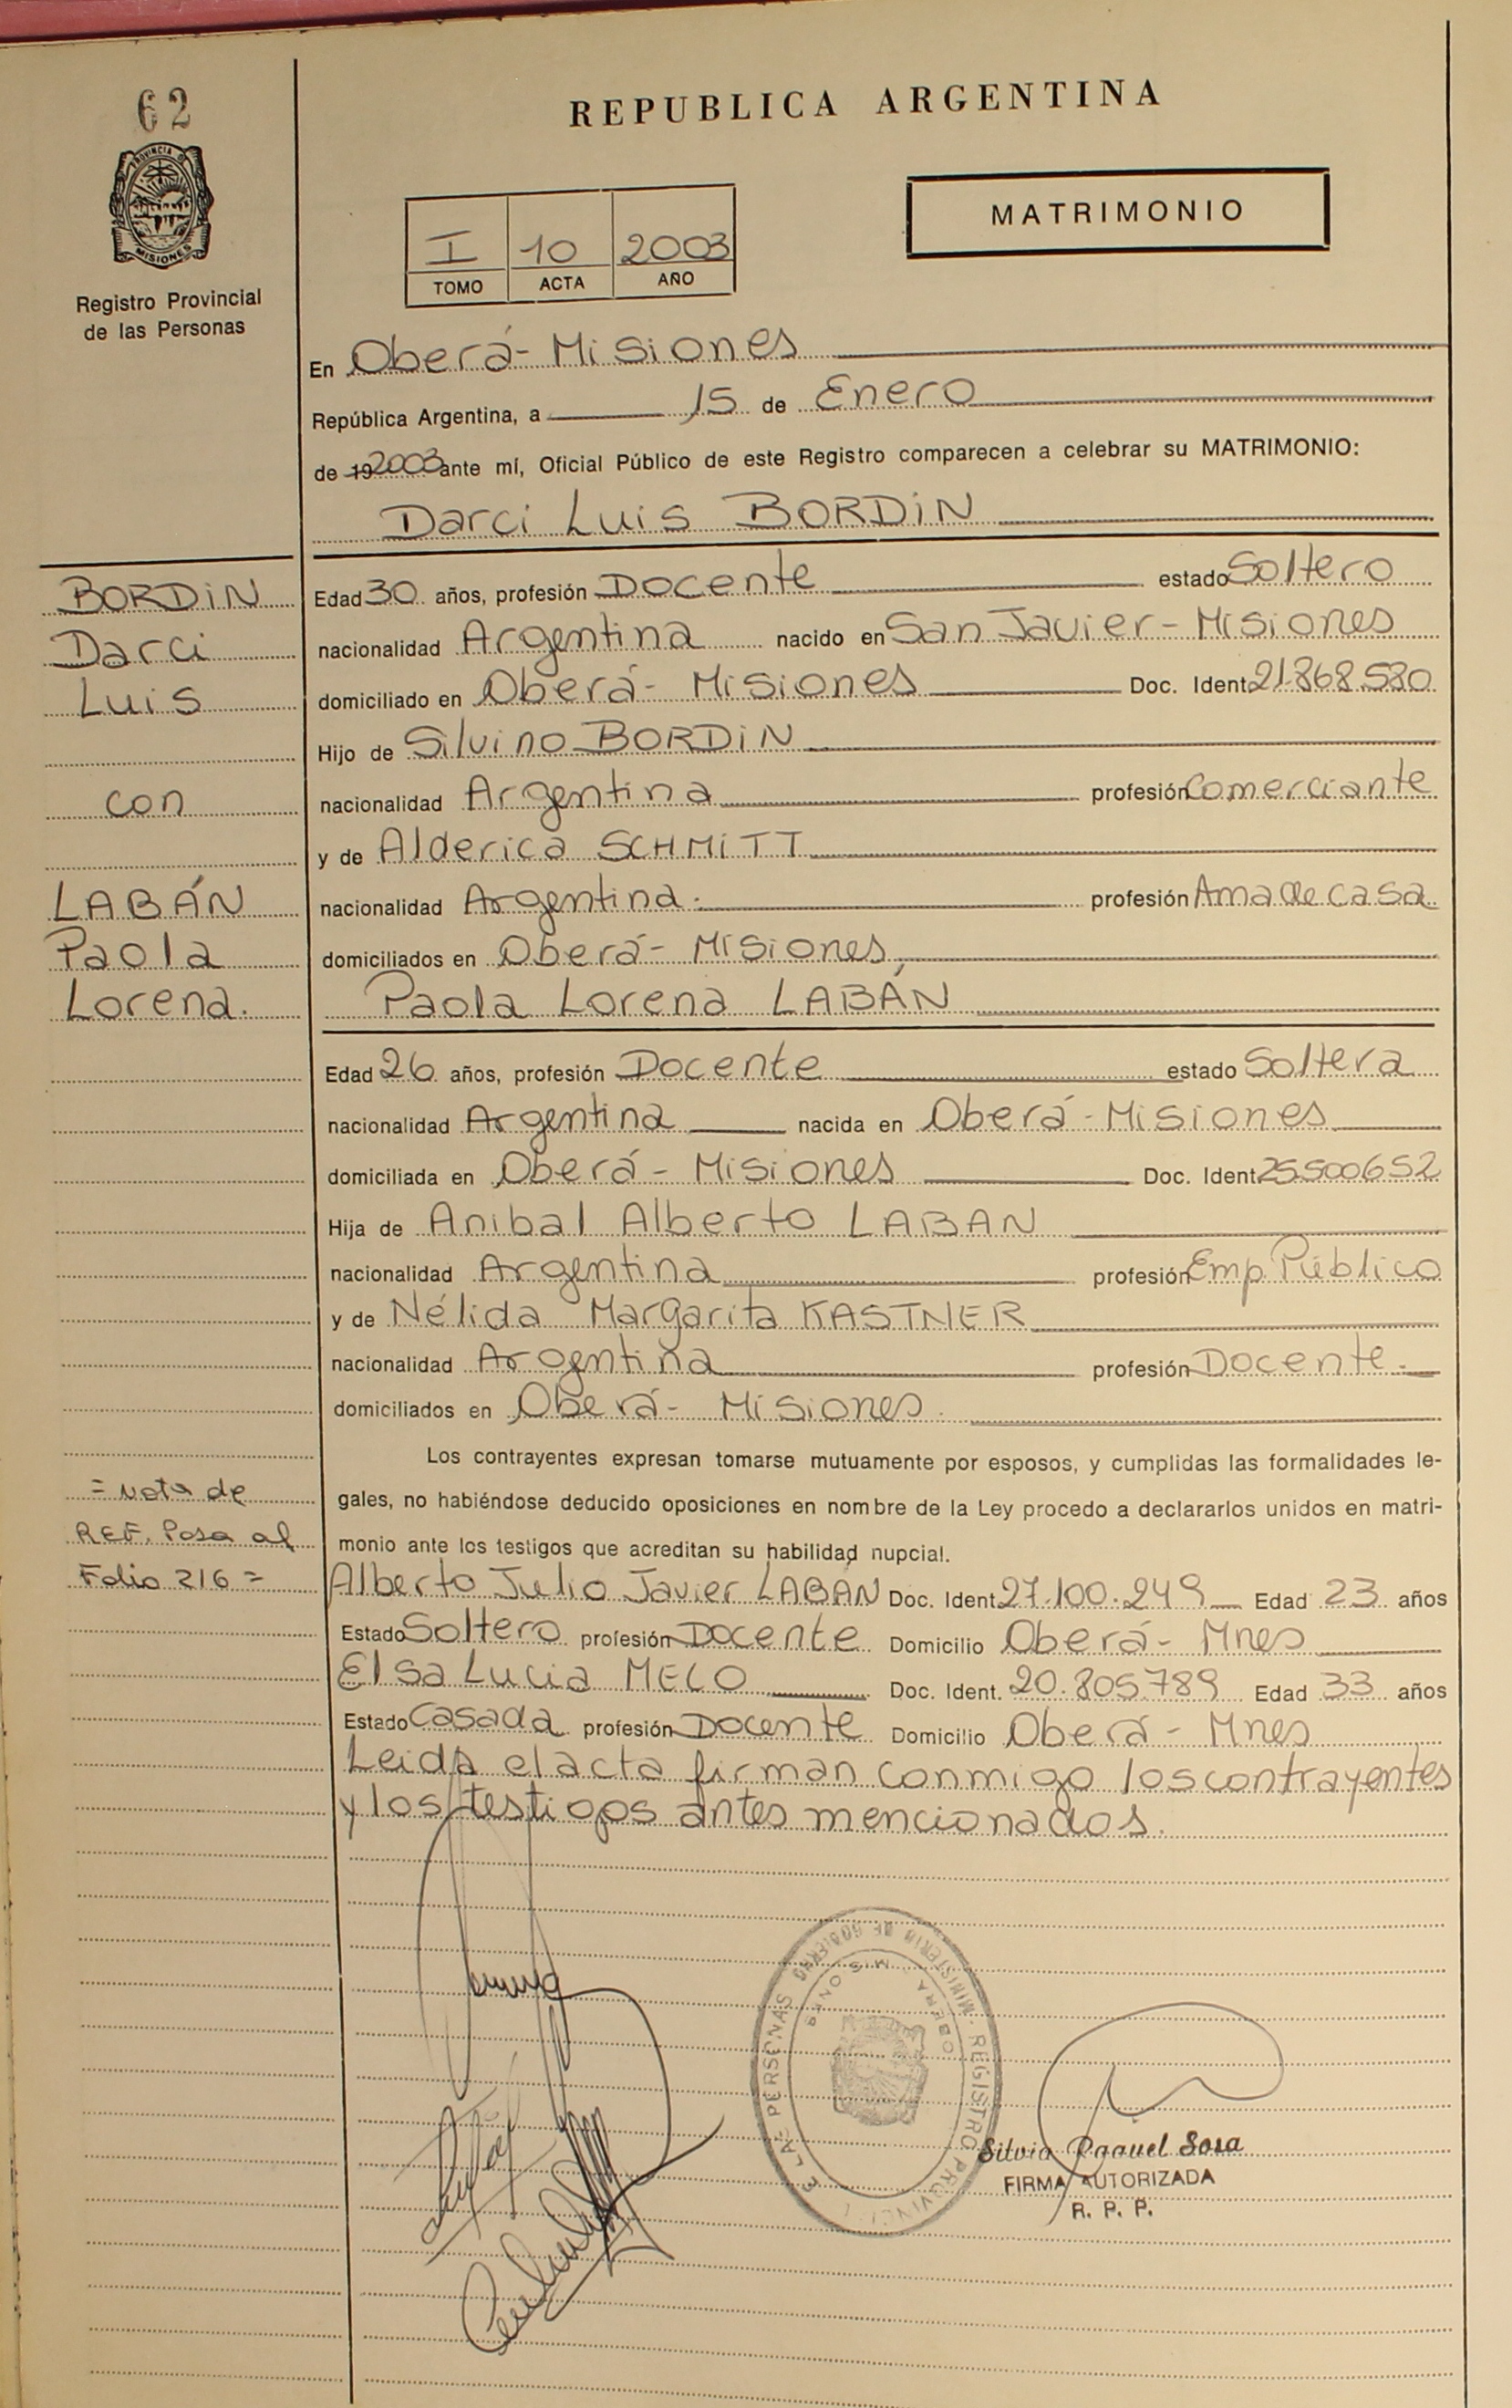 62
REPUBLICA ARGENTINA
PROVINCIA DE
MISIONES
Registro Provincial
de las Personas
MATRIMONIO
I 10 2003
TOMO ACTA AÑO
En Oberá - Misiones
República Argentina, a 15 de Enero
de 19 2003 ante mí, Oficial Público de este Registro comparecen a celebrar su MATRIMONIO:
Darci Luis BORDIN
BORDIN
Darci
Luis
con
LABÁN
Paola
Lorena.
Edad 30 años, profesión Docente estado Soltero
nacionalidad Argentina nacido en San Javier - Misiones
domiciliado en Oberá - Misiones Doc. Ident. 21.868.580
Hijo de Silvino BORDIN
nacionalidad Argentina profesión Comerciante
y de Alderica SCHMITT
nacionalidad Argentina. profesión Ama de casa
domiciliados en Oberá - Misiones
Paola Lorena LABÁN
Edad 26 años, profesión Docente estado Soltera
nacionalidad Argentina nacida en Oberá - Misiones
domiciliada en Oberá - Misiones Doc. Ident. 25500652
Hija de Anibal Alberto LABAN
nacionalidad Argentina profesión Emp. Público
y de Nélida Margarita KASTNER
nacionalidad Argentina profesión Docente.
domiciliados en Oberá - Misiones.
Los contrayentes expresan tomarse mutuamente por esposos, y cumplidas las formalidades le-
gales, no habiéndose deducido oposiciones en nombre de la Ley procedo a declararlos unidos en matri-
monio ante los testigos que acreditan su habilidad nupcial.
= Nota de
REF. Pasa al
Folio 216 =
Alberto Julio Javier LABÁN Doc. Ident. 27.100.249 Edad 23 años
Estado Soltero profesión Docente Domicilio Oberá - Mnes
Elsa Lucia MELO Doc. Ident. 20.805.789 Edad 33 años
Estado Casada profesión Docente Domicilio Oberá - Mnes
Leida el acta firman conmigo los contrayentes
y los testigos antes mencionados.
MINISTERIO DE GOBIERNO
REGISTRO PROVINCI
E LAS PERSONAS
OBERA
Silvia Raquel Sosa
FIRMA AUTORIZADA
R. P. P.